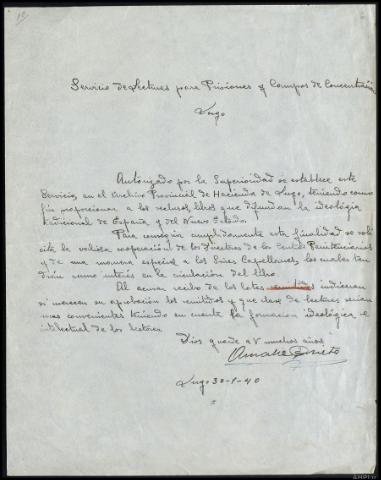 Servicio de Lectura para Prisiones y Campos de Concentración
Lugo
Autorizado por la Superioridad se establece este
Servicio, en el Archivo Provincial de Hacienda de Lugo, teniendo como
fin proporcionar a los reclusos libros que difundan la ideología
tradicional de España y del Nuevo Estado.
Para conseguir ampliamente esta finalidad se soli
cita la valiosa cooperación de los Directores de los Penitenciarios
y de una manera especial a los Sres Capellanes los cuales ten
drán sumo interés en la circulación del libro.
Al acusar recibo de los lotes remitidos indicaran
si merecen su aprobación los remitidos y que clase de lectura serían
mas convenientes teniendo en cuenta la formación ideológica e
intelectual de los lectores.
Dios guarde a V muchos años
Amalia Prieto
Lugo 30-1-40
AHPLU